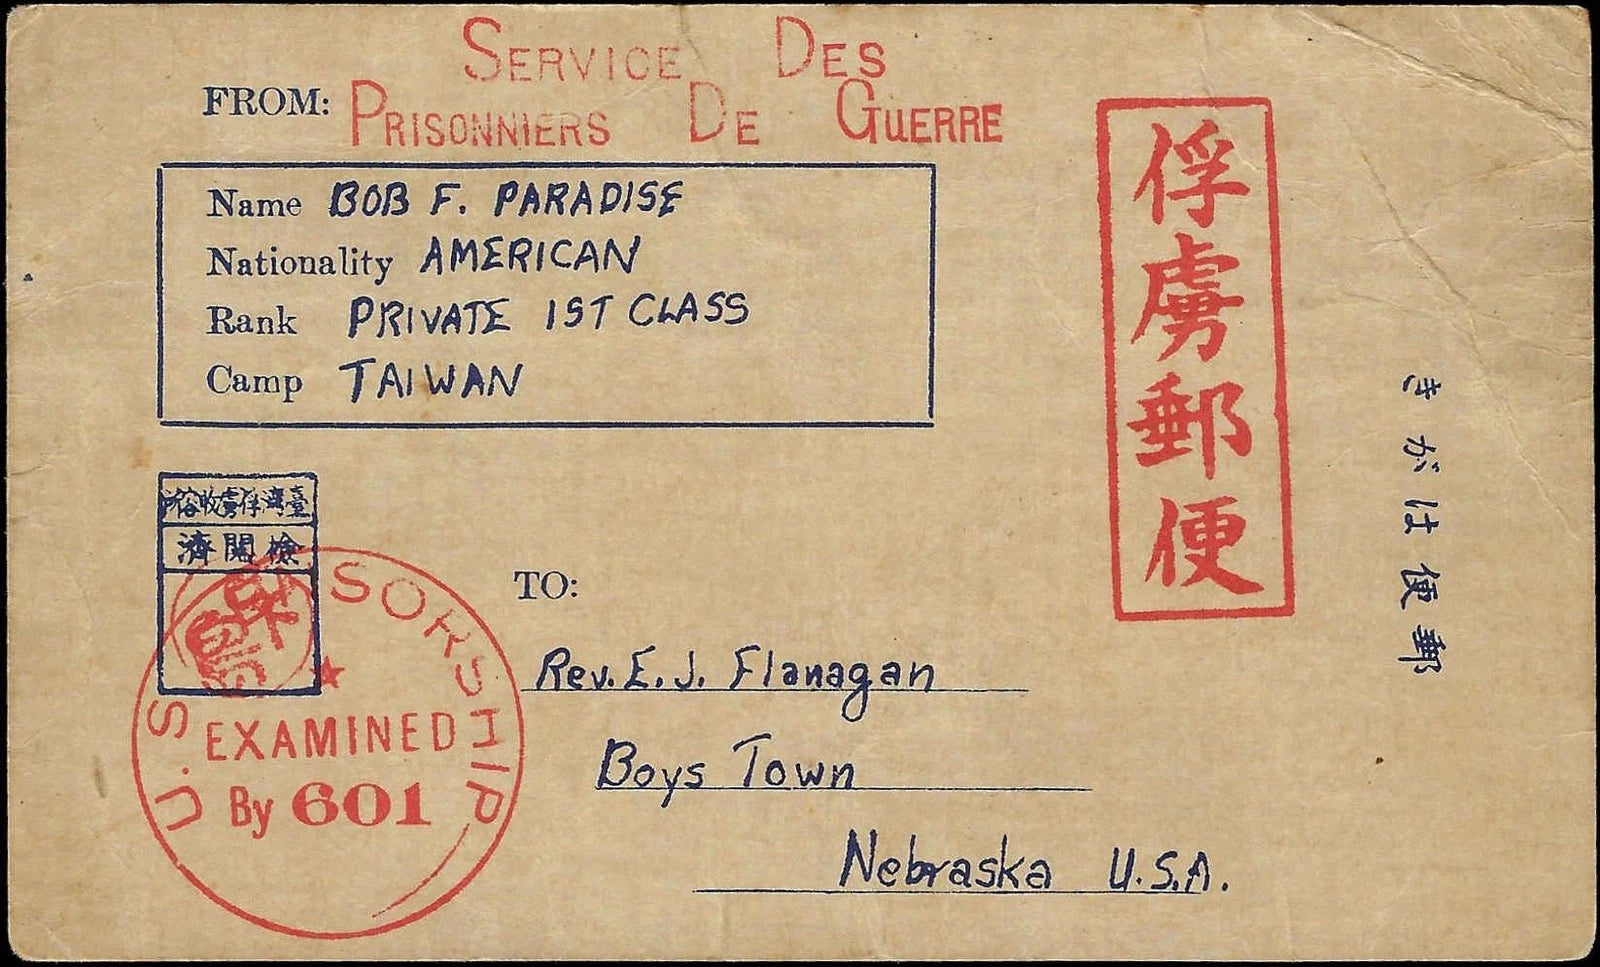 SERVICE DES
PRISONNIERS DE GUERRE
FROM:
Name BOB F. PARADISE
Nationality AMERICAN
Rank PRIVATE 1ST CLASS
Camp TAIWAN
俘虜郵便
きがは便郵
所容收虜俘灣臺
濟閱檢
U.S. SORSHIP
EXAMINED
By 601
TO:
Rev. E. J. Flanagan
Boys Town
Nebraska U.S.A.